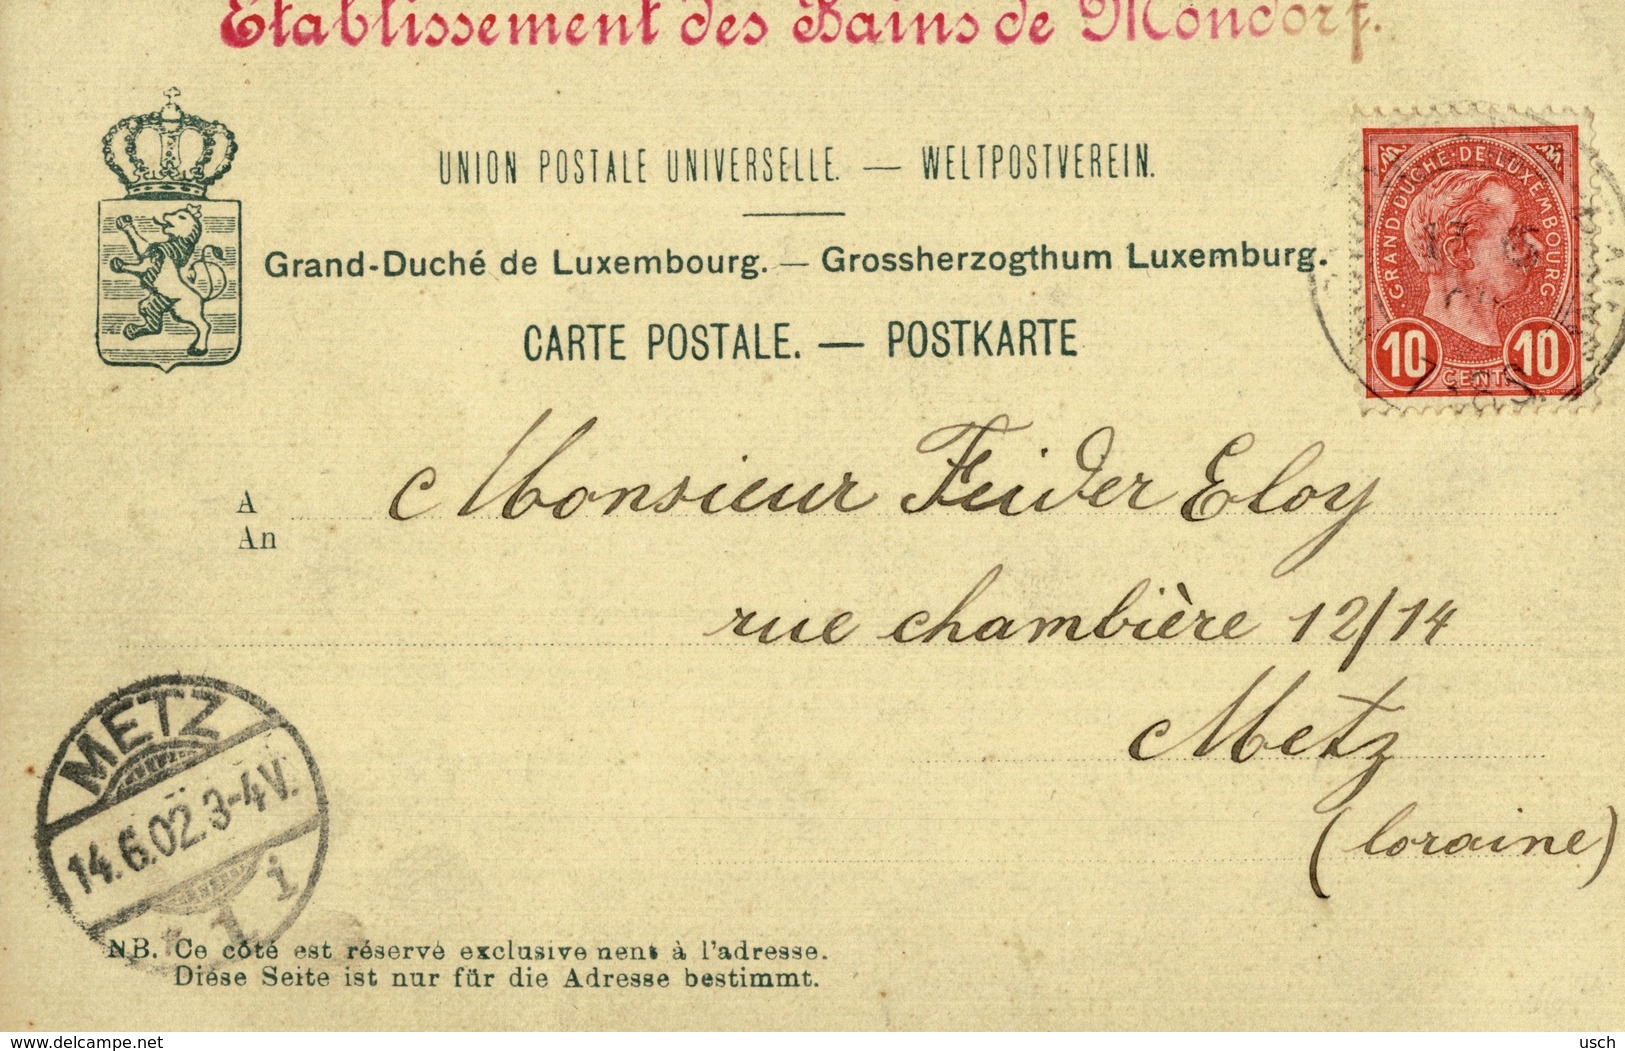 Etablissement des Bains de Mondorf.
UNION POSTALE UNIVERSELLE. — WELTPOSTVEREIN.
Grand-Duché de Luxembourg. — Grossherzogthum Luxemburg.
CARTE POSTALE. — POSTKARTE
GRAND-DUCHE-DE-LUXEMBOURG
10 CENTS 10
A
An
Monsieur Feider Eloy
rue chambière 12/14
Metz
(loraine)
METZ
14.6.02.3-4V.
* 1 i
NB. Ce côté est réservé exclusivement à l'adresse.
Diese Seite ist nur für die Adresse bestimmt.
www.delcampe.net
usch